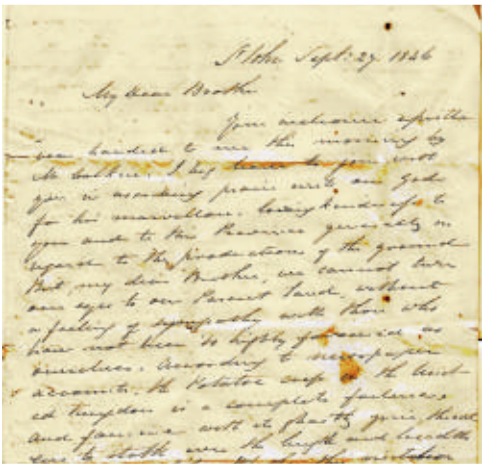 St John Sept: 27 1846
My Dear Brother
Your welcome epistle
was handed to me this morning by
Mr I beg leave to join with
you in ascribing praise unto our God
for his marvellous loving kindness to
you and to this Province generally in
regard to the productions of the ground
But, my dear Brother, we cannot turn
our eyes to our Parent land, without
a feeling of sympathy with those who
have not been so highly favoured as
ourselves. According to newspaper
accounts, the Potatoe crop in the Unit-
ed Kingdom is a complete failure,
and famine with its ghastly grin, threat
ens to stalk over the length and breadth
of the